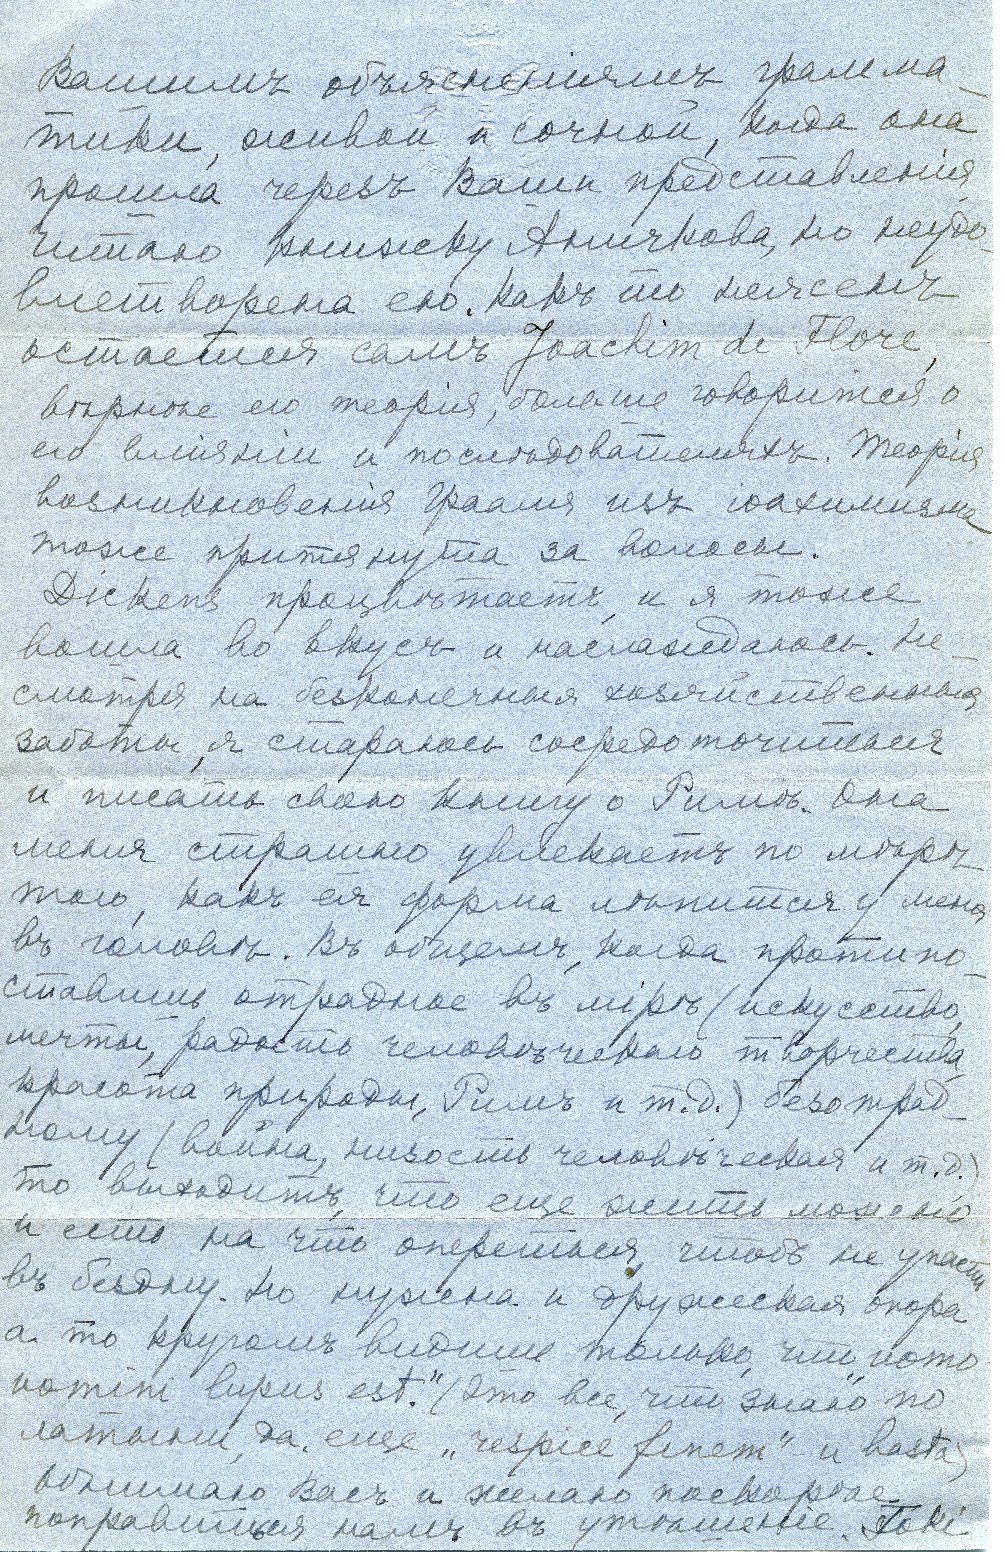 Вашимъ объясненіямъ грамма-
тики, живой и сочной, когда она
прошла черезъ Ваши представленія
Читаю книжку Аничкова, но неудо-
влетворена ею. Какъ то неясенъ
остается самъ Joachim de Flore,
вѣрнѣе его теорія, больше говорится о
его вліяніи и послѣдователяхъ. Теорія
возникновенія Грааля изъ іоахимизма
тоже притянута за волосы.
Dickens процвѣтаетъ, и я тоже
вошла во вкусъ и наслаждаюсь. Не-
смотря на безконечныя хозяйственныя
заботы, я стараюсь сосредоточиться
и писать свою книгу о Римѣ. Она
меня страшно увлекаетъ по мѣрѣ
того, какъ ея форма лѣпится у меня
въ головѣ. Въ общемъ, когда противо-
ставишь отрадное въ мірѣ (искусство,
мечты, радость человѣческаго творчества,
красота природы, Римъ и т.д.) безотрад-
ному (война, низость человѣческая и т.д.)
то выходитъ, что еще жить можно
и есть на что опереться, чтобъ не упасть
въ бездну. Но нужна и дружеская опора
а то кругомъ видишь только, что „homo
homini lupus est." (Это все, что знаю по
латыни, да еще „respice finem" и basta)
Обнимаю Васъ и желаю поскорѣе
поправиться намъ въ утѣшеніе.